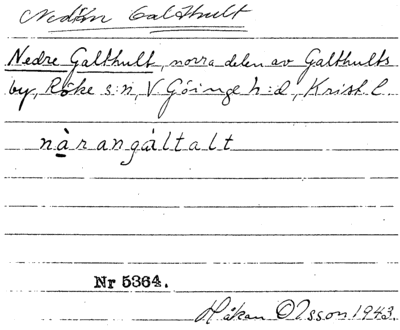 Nedan Galthult
Nedre Galthult, norra delen av Galthults
by, Röke s:n, V. Göinge h:d, Krist. l.
nàrangáltalt
Nr 5364.
Håkan Olsson 1943.